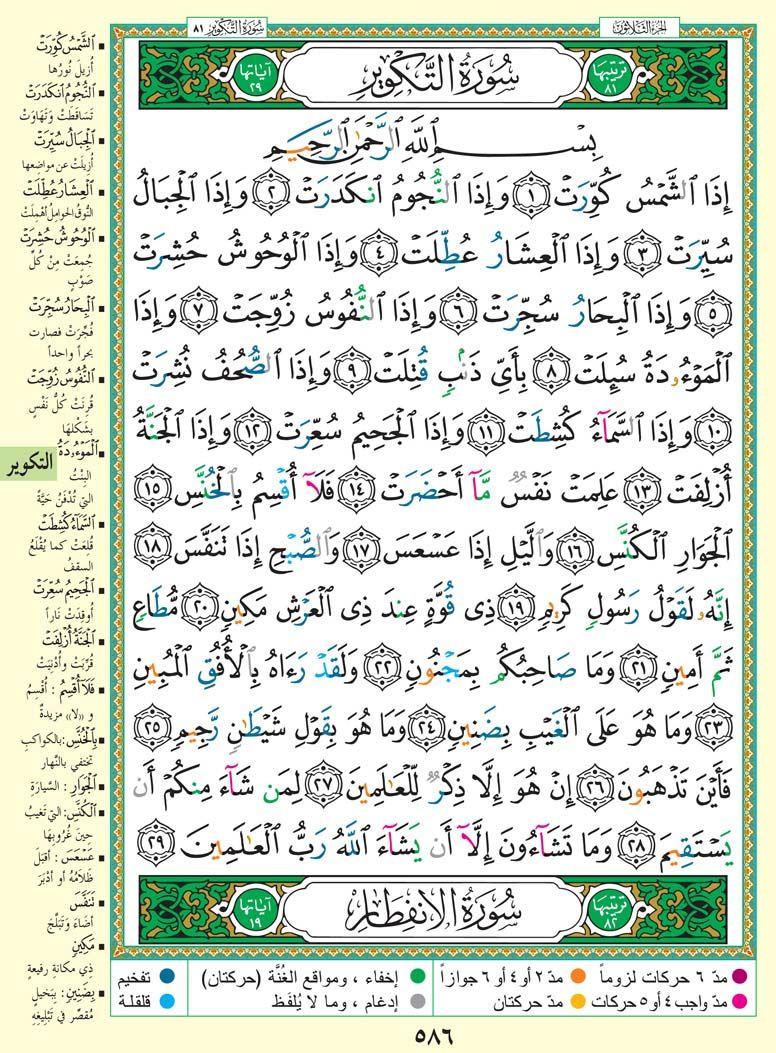 الجزء الثلاثون
سورة التكوير ٨١
ترتيبها ٨١
سُورَةُ التَّكْوِيرِ
آياتها ٢٩
بِسْمِ ٱللَّهِ ٱلرَّحْمَٰنِ ٱلرَّحِيمِ
إِذَا ٱلشَّمْسُ كُوِّرَتْ ١ وَإِذَا ٱلنُّجُومُ ٱنكَدَرَتْ ٢ وَإِذَا ٱلْجِبَالُ
سُيِّرَتْ ٣ وَإِذَا ٱلْعِشَارُ عُطِّلَتْ ٤ وَإِذَا ٱلْوُحُوشُ حُشِرَتْ
٥ وَإِذَا ٱلْبِحَارُ سُجِّرَتْ ٦ وَإِذَا ٱلنُّفُوسُ زُوِّجَتْ ٧ وَإِذَا
ٱلْمَوْءُۥدَةُ سُئِلَتْ ٨ بِأَىِّ ذَنۢبٍ قُتِلَتْ ٩ وَإِذَا ٱلصُّحُفُ نُشِرَتْ
١٠ وَإِذَا ٱلسَّمَآءُ كُشِطَتْ ١١ وَإِذَا ٱلْجَحِيمُ سُعِّرَتْ ١٢ وَإِذَا ٱلْجَنَّةُ
أُزْلِفَتْ ١٣ عَلِمَتْ نَفْسٌ مَّآ أَحْضَرَتْ ١٤ فَلَآ أُقْسِمُ بِٱلْخُنَّسِ ١٥
ٱلْجَوَارِ ٱلْكُنَّسِ ١٦ وَٱلَّيْلِ إِذَا عَسْعَسَ ١٧ وَٱلصُّبْحِ إِذَا تَنَفَّسَ ١٨
إِنَّهُۥ لَقَوْلُ رَسُولٍ كَرِيمٍ ١٩ ذِى قُوَّةٍ عِندَ ذِى ٱلْعَرْشِ مَكِينٍ ٢٠ مُّطَاعٍ
ثَمَّ أَمِينٍ ٢١ وَمَا صَاحِبُكُم بِمَجْنُونٍ ٢٢ وَلَقَدْ رَءَاهُ بِٱلْأُفُقِ ٱلْمُبِينِ
٢٣ وَمَا هُوَ عَلَى ٱلْغَيْبِ بِضَنِينٍ ٢٤ وَمَا هُوَ بِقَوْلِ شَيْطَٰنٍ رَّجِيمٍ ٢٥
فَأَيْنَ تَذْهَبُونَ ٢٦ إِنْ هُوَ إِلَّا ذِكْرٌ لِّلْعَٰلَمِينَ ٢٧ لِمَن شَآءَ مِنكُمْ أَن
يَسْتَقِيمَ ٢٨ وَمَا تَشَآءُونَ إِلَّآ أَن يَشَآءَ ٱللَّهُ رَبُّ ٱلْعَٰلَمِينَ ٢٩
ترتيبها ٨٢
سُورَةُ الانفِطَارِ
آياتها ١٩
ٱلشَّمْسُ كُوِّرَتْ
أُزيلَ نُورُها
ٱلنُّجُومُ ٱنكَدَرَتْ
تَسَاقَطَتْ وَتَهَاوَتْ
ٱلْجِبَالُ سُيِّرَتْ
أُزيلَتْ عن مواضعها
ٱلْعِشَارُ عُطِّلَتْ
النُّوقُ الحَوامِلُ أُهْمِلَتْ
ٱلْوُحُوشُ حُشِرَتْ
جُمِعَتْ مِنْ كُلِّ
صَوْبٍ
ٱلْبِحَارُ سُجِّرَتْ
فُجِّرَتْ فصارت
بحراً واحداً
ٱلنُّفُوسُ زُوِّجَتْ
قُرِنَتْ كُلُّ نَفْسٍ
بِشَكْلِها
ٱلْمَوْءُۥدَةُ
البِنْتُ
التي تُدْفَنُ حَيَّةً
ٱلسَّمَآءُ كُشِطَتْ
قُلِعَتْ كما يُقْلَعُ
السقفُ
ٱلْجَحِيمُ سُعِّرَتْ
أُوقِدَتْ نَاراً
ٱلْجَنَّةُ أُزْلِفَتْ
قُرِّبَتْ وأُدْنِيَتْ
فَلَآ أُقْسِمُ : أُقْسِمُ
و «لا» مزيدةٌ
بِٱلْخُنَّسِ: بالكواكبِ
تختفي بالنَّهارِ
ٱلْجَوَارِ : السَّيارَةِ
ٱلْكُنَّسِ: التي تَغيبُ
حينَ غُرُوبِهَا
عَسْعَسَ : أقبَلَ
ظَلَامُهُ أو أَدْبَرَ
تَنَفَّسَ
أضاءَ وَتَبَلَّجَ
مَكِينٍ
ذِي مكانةٍ رفيعةٍ
بِضَنِينٍ: بِبَخيلٍ
مُقصِّرٍ في تَبْلِيغِهِ
التكوير
مدّ ٦ حركات لزوماً
مدّ ٢ أو ٤ أو ٦ جوازاً
إخفاء ، ومواقع الغُنَّة (حركتان)
تفخيم
مدّ واجب ٤ أو ٥ حركات
مدّ حركتان
إدغام ، وما لا يُلفَظ
قلقلة
٥٨٦